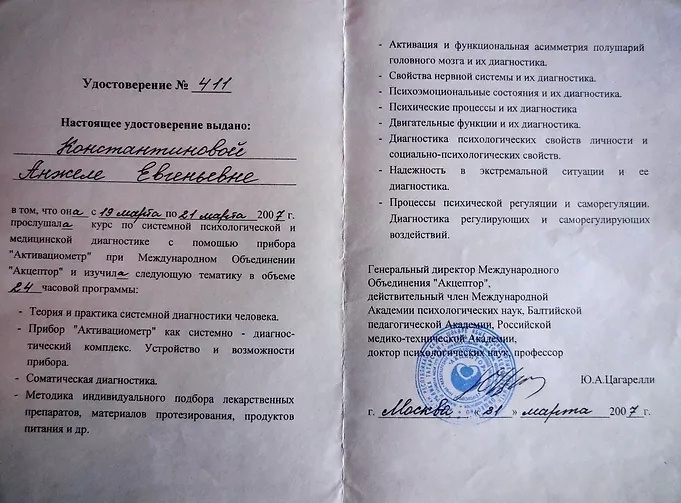 Удостоверение № 411
Настоящее удостоверение выдано:
Константиновой
Анжеле Евгеньевне
в том, что она с 19 марта по 21 марта 2007 г.
прослушала курс по системной психологической и
медицинской диагностике с помощью прибора
"Активациометр" при Международном Объединении
"Акцептор" и изучила следующую тематику в объеме
24 часовой программы:
- Теория и практика системной диагностики человека.
- Прибор "Активациометр" как системно - диагнос-
тический комплекс. Устройство и возможности
прибора.
- Соматическая диагностика.
- Методика индивидуального подбора лекарственных
препаратов, материалов протезирования, продуктов
питания и др.
- Активация и функциональная асимметрия полушарий
головного мозга и их диагностика.
- Свойства нервной системы и их диагностика.
- Психоэмоциональные состояния и их диагностика.
- Психические процессы и их диагностика
- Двигательные функции и их диагностика.
- Диагностика психологических свойств личности и
социально-психологических свойств.
- Надежность в экстремальной ситуации и ее
диагностика.
- Процессы психической регуляции и саморегуляции.
Диагностика регулирующих и саморегулирующих
воздействий.
Генеральный директор Международного
Объединения "Акцептор",
действительный член Международной
Академии психологических наук, Балтийской
педагогической Академии, Российской
медико-технической Академии,
доктор психологических наук, профессор
Ю.А.Цагарелли
г. Москва « 21 » марта 2007 г.